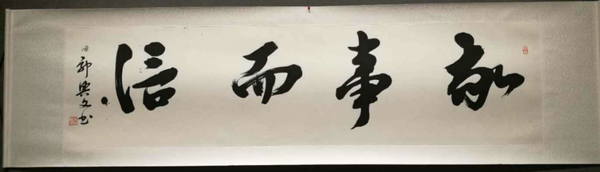 敬事而信
郭兴文书